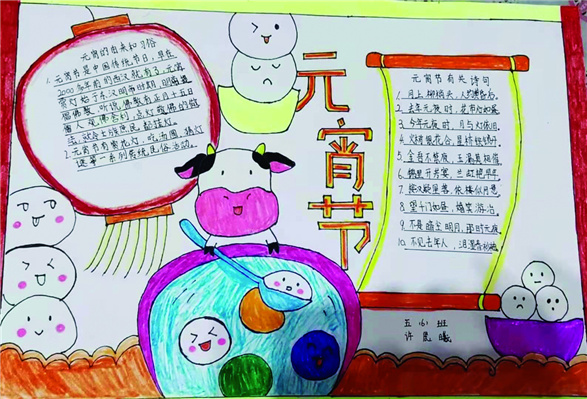 元宵的由来和习俗
1. 元宵节是中国传统节日，早在
2000多年前的西汉就有了，元宵
赏灯始于东汉明帝时期，明帝提
倡佛教，听说佛教有正月十五日
僧人观佛舍利，点灯敬佛的做
法，就命令 庶民都挂灯
2. 元宵节有赏花灯、吃汤圆、猜灯
谜等一系列传统民俗活动。
元宵节
元宵节有关诗句
1. 月上柳梢头，人约黄昏后。
2. 去年元夜时，花市灯如昼。
3. 今年元夜时，月与灯依旧。
4. 火树银花合，星桥铁锁开。
5. 金吾不禁夜，玉漏莫相催。
6. 锦里开芳宴，兰缸艳早年。
7. 接汉疑星落，依楼似月悬。
8. 望千门如昼，嬉笑游冶。
9. 不是暗尘明月，那时元夜。
10. 不见去年人，泪湿春衫袖。
五（6）班
许晨曦